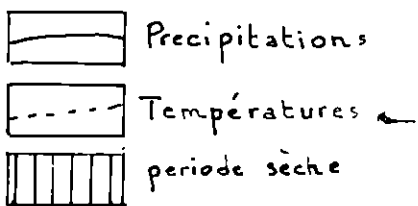 Precipitations
Températures
periode sèche